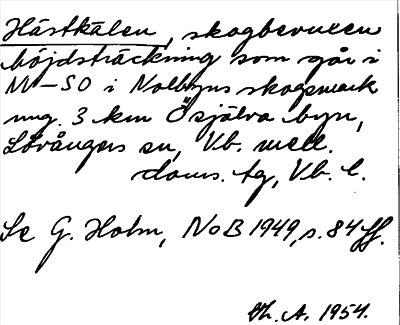 Hästkälen, skogbevuxen
höjdsträckning som går i
N–SO i Nolbyns skogsmark
ung. 3 km Ö själva byn,
Lövångers sn, Vb. mell.
doms. tg, Vb. l.
Se G. Holm, NoB 1949, s. 84 ff.
Th. A. 1954.